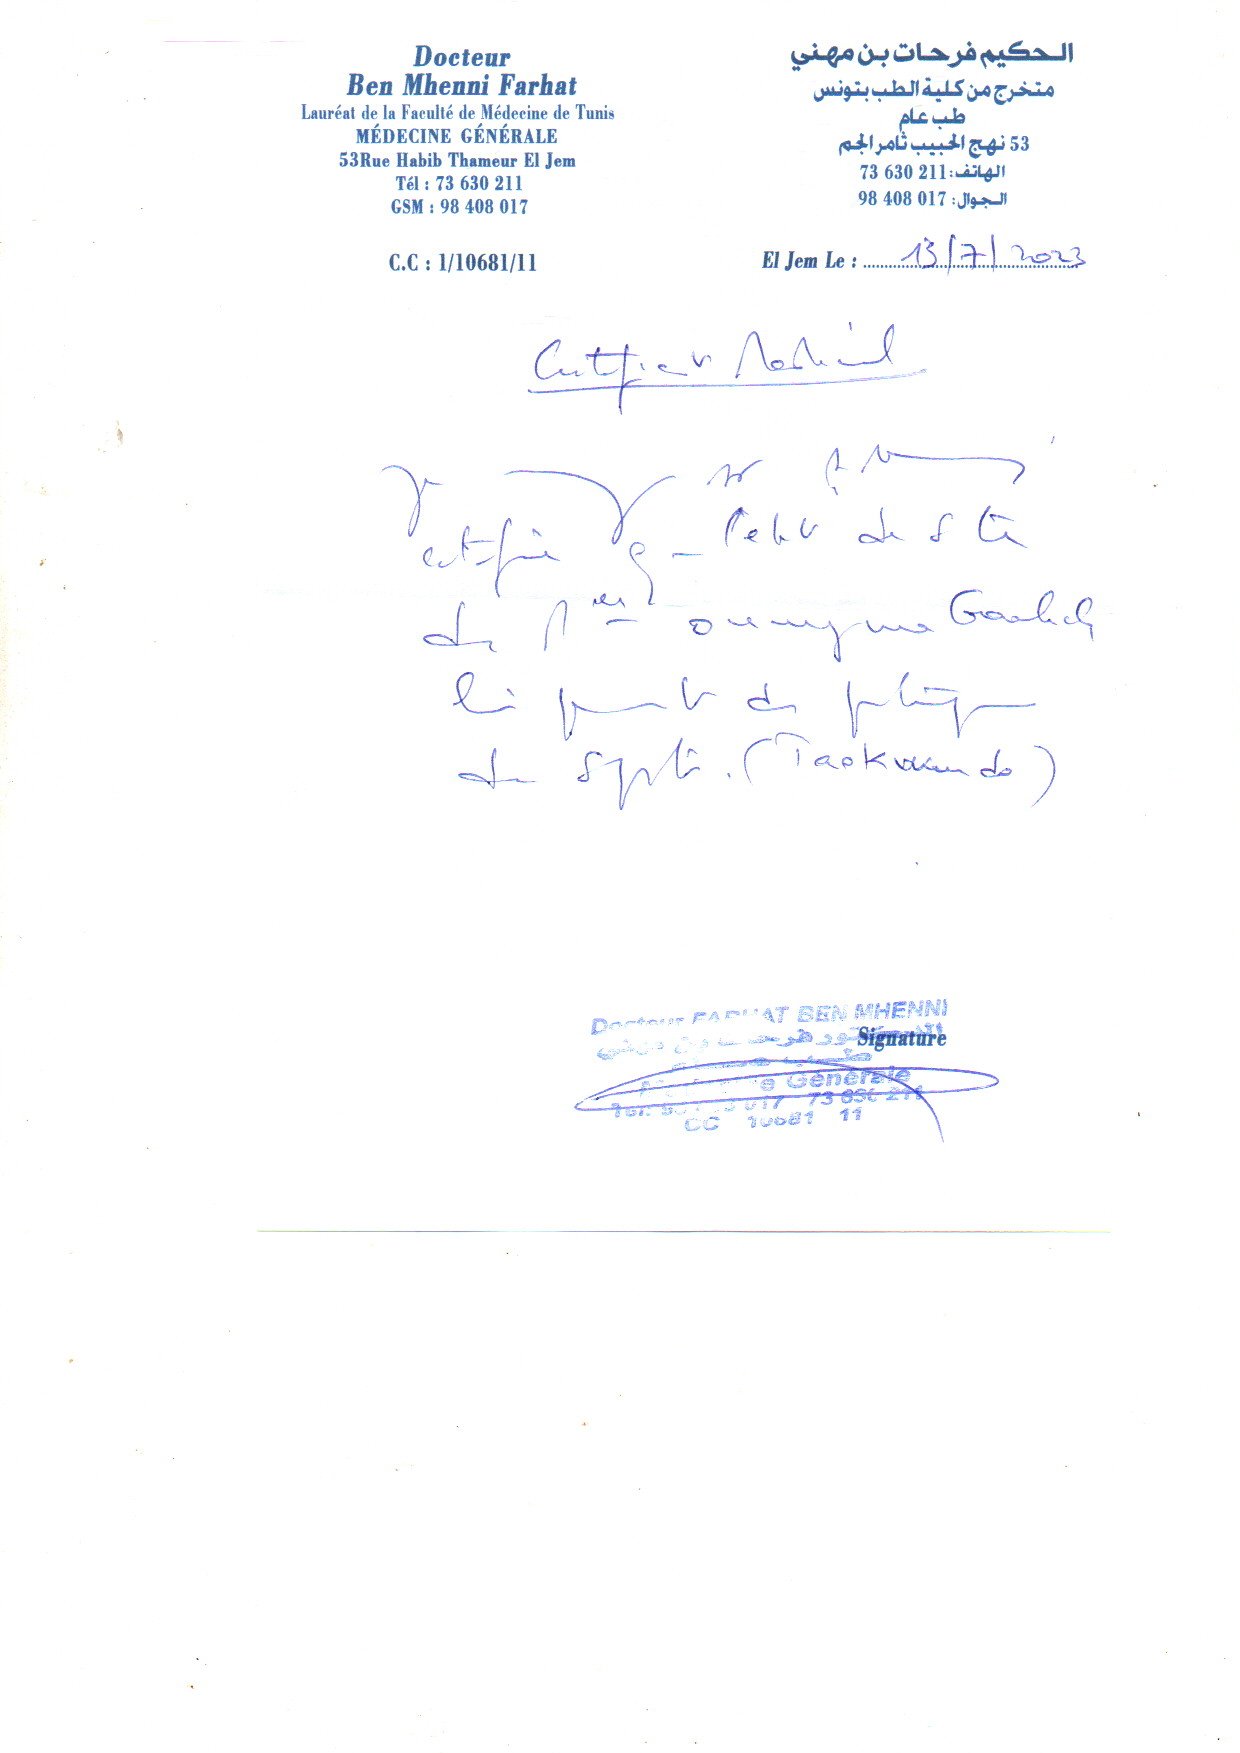 Docteur
Ben Mhenni Farhat
Lauréat de la Faculté de Médecine de Tunis
MÉDECINE GÉNÉRALE
53Rue Habib Thameur El Jem
Tél : 73 630 211
GSM : 98 408 017
C.C : 1/10681/11
الحكيم فرحات بن مهني
متخرج من كلية الطب بتونس
طب عام
53 نهج الحبيب ثامر الجم
الهاتف: 211 630 73
الجوال: 017 408 98
El Jem Le : 13/7/2023
Certificat Médical
Je
certifie que l'état de santé
de oumeyma
lui permet de pratiquer
du sport. (Taekwondo)
Docteur FARHAT BEN MHENNI
Signature
Générale
73 630 211
CC 10681 11